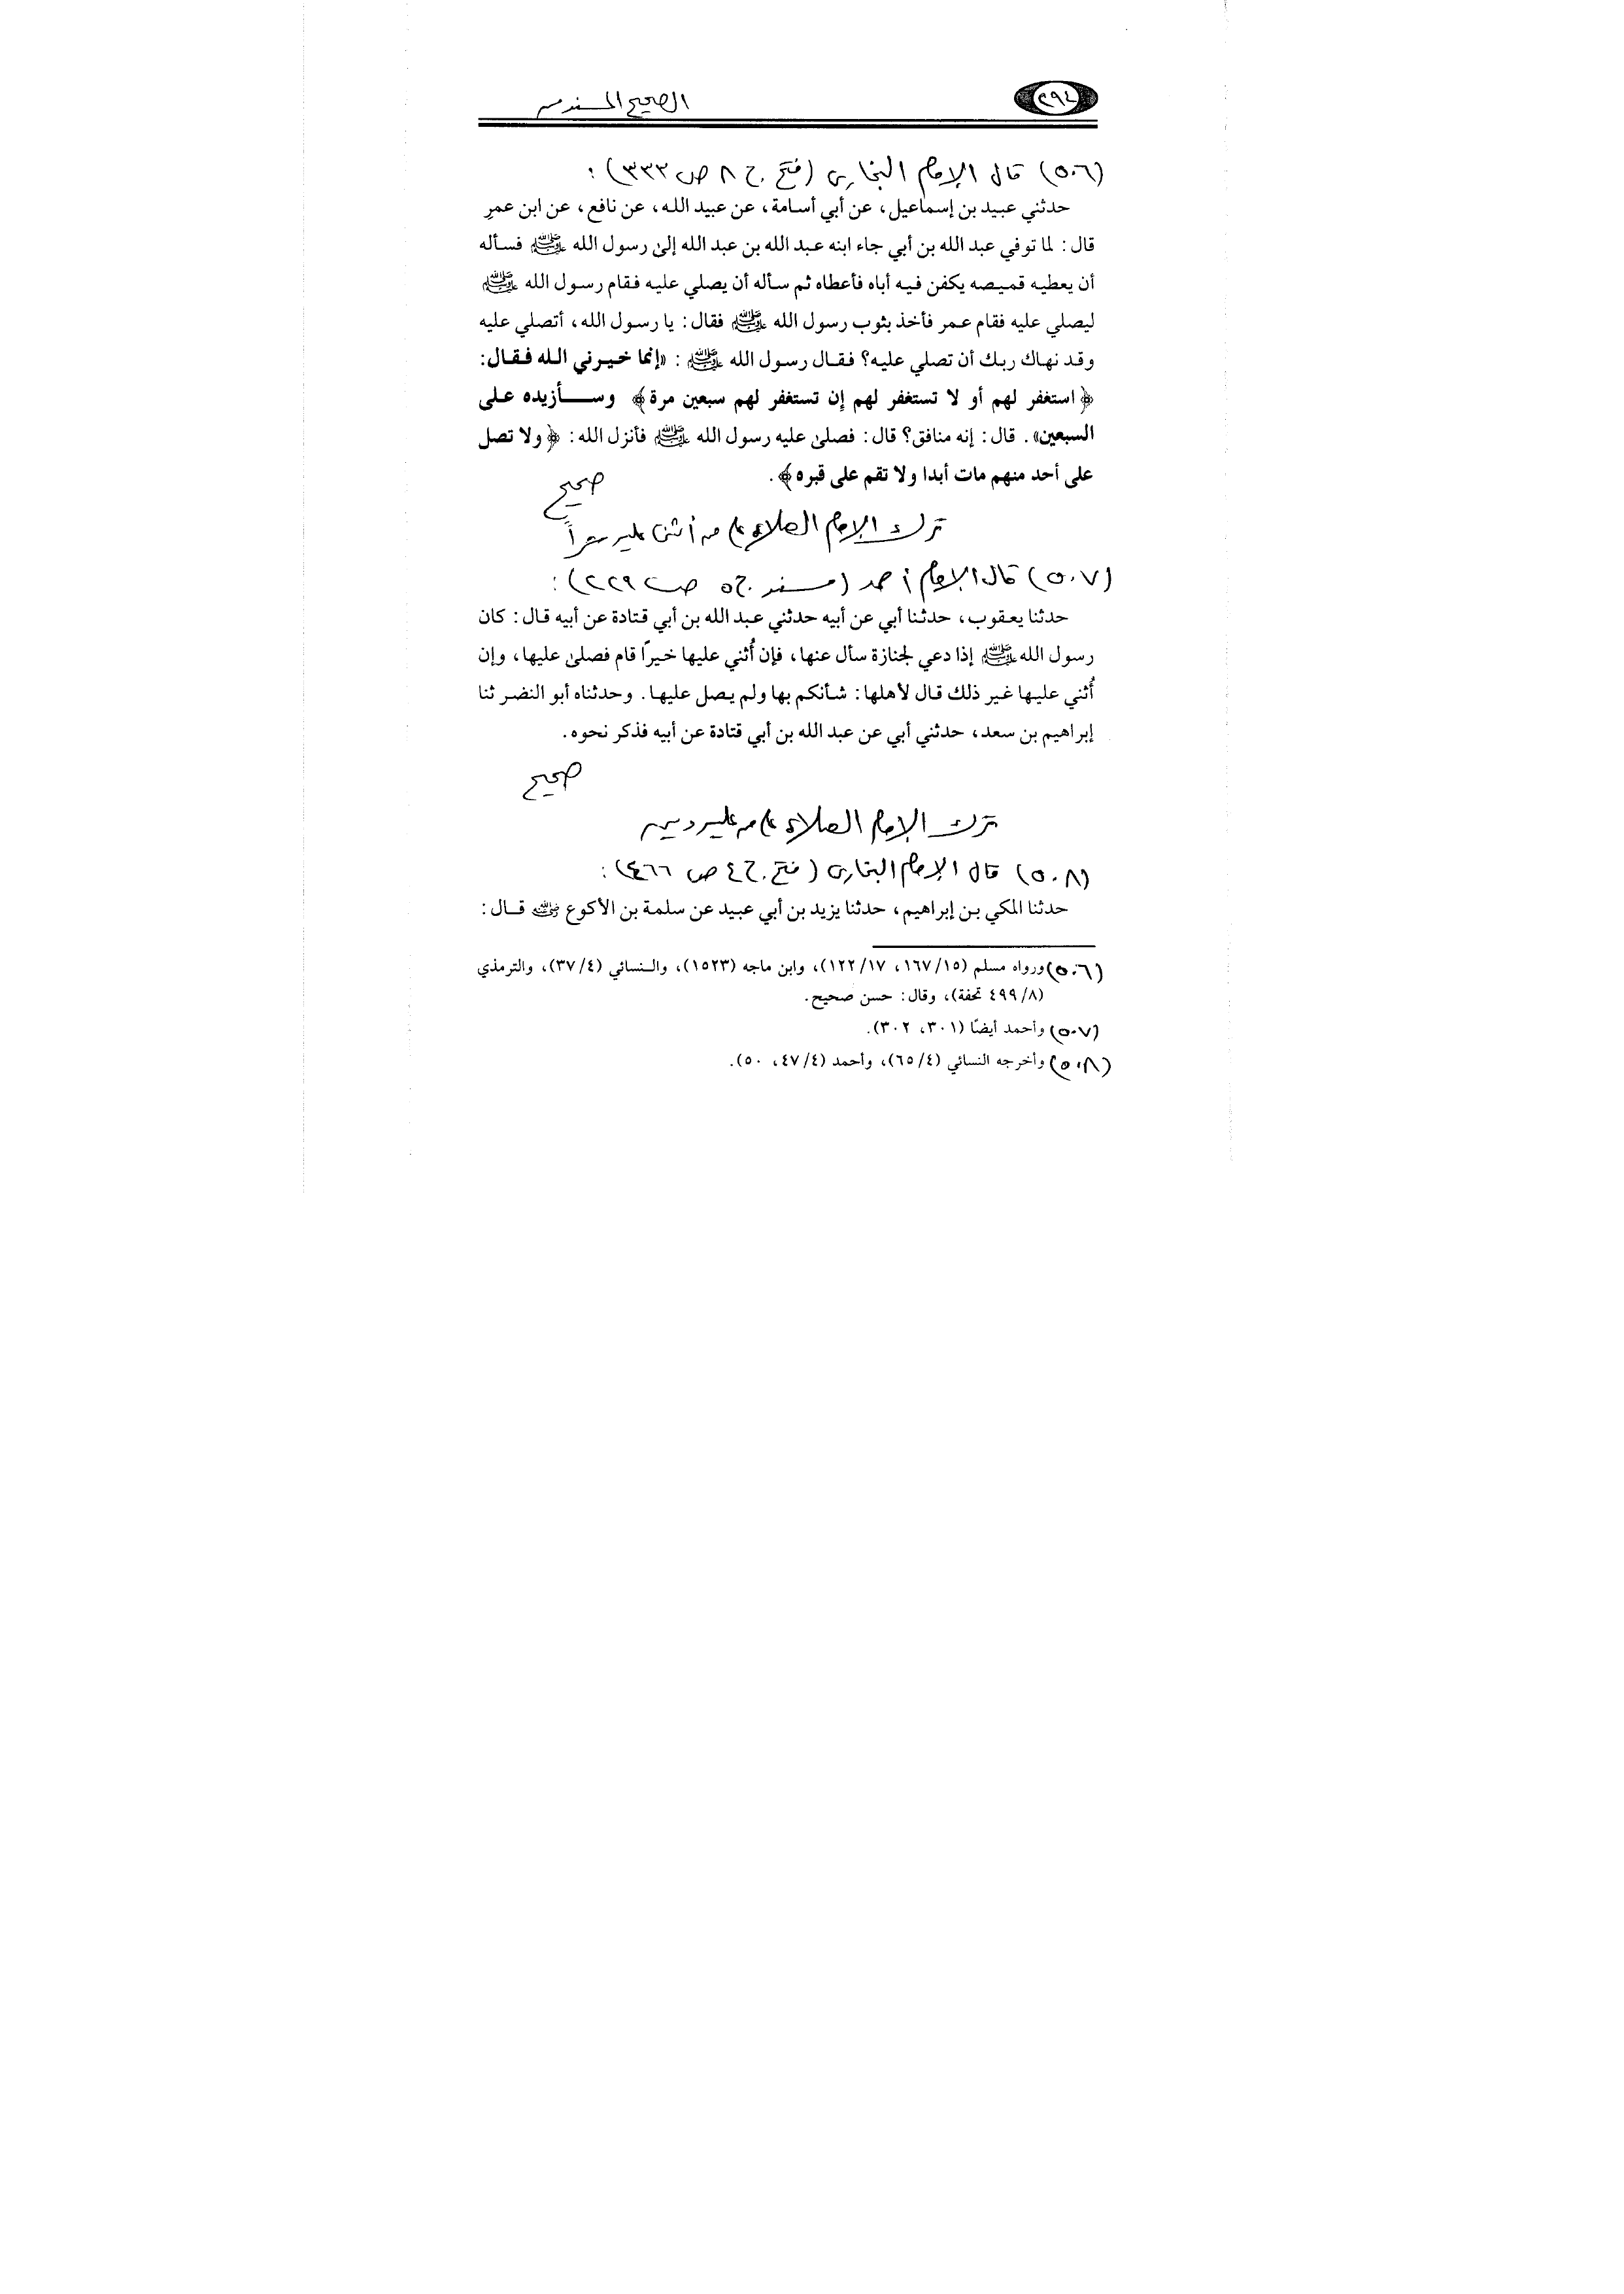 ٢٩٤
الصحيح المسند من
(٥٠٦) قال الإمام البخاري (فتح ج ٨ ص ٣٣٣):
حدثني عبيد بن إسماعيل، عن أبي أسامة، عن عبيد الله، عن نافع، عن ابن عمر
قال: لما توفي عبد الله بن أبي جاء ابنه عبد الله بن عبد الله إلىٰ رسول الله ﷺ فسأله
أن يعطيه قميصه يكفن فيه أباه فأعطاه ثم سأله أن يصلي عليه فقام رسول الله ﷺ
ليصلي عليه فقام عمر فأخذ بثوب رسول الله ﷺ فقال: يا رسول الله، أتصلي عليه
وقد نهاك ربك أن تصلي عليه؟ فقال رسول الله ﷺ: «إنما خيرني الله فقال:
﴿استغفر لهم أو لا تستغفر لهم إن تستغفر لهم سبعين مرة﴾ وسأزيده على
السبعين». قال: إنه منافق؟ قال: فصلىٰ عليه رسول الله ﷺ فأنزل الله: ﴿ولا تصل
على أحد منهم مات أبدا ولا تقم على قبره﴾.
صحيح
ترك الإمام الصلاة على من أثني عليه شراً
(٥٠٧) قال الإمام أحمد (مسند ج٥ ص ٢٢٩):
حدثنا يعقوب، حدثنا أبي عن أبيه حدثني عبد الله بن أبي قتادة عن أبيه قال: كان
رسول الله ﷺ إذا دعي لجنازة سأل عنها، فإن أُثني عليها خيرًا قام فصلىٰ عليها، وإن
أُثني عليها غير ذلك قال لأهلها: شأنكم بها ولم يصل عليها. وحدثناه أبو النضر ثنا
إبراهيم بن سعد، حدثني أبي عن عبد الله بن أبي قتادة عن أبيه فذكر نحوه.
صحيح
ترك الإمام الصلاة على من عليه دين
(٥٠٨) قال الإمام البخاري (فتح ج ٤ ص ٤٦٦):
حدثنا المكي بن إبراهيم، حدثنا يزيد بن أبي عبيد عن سلمة بن الأكوع رضي الله عنه قال:
(٥٠٦) ورواه مسلم (١٦٧/١٥، ١٢٢/١٧)، وابن ماجه (١٥٢٣)، والنسائي (٣٧/٤)، والترمذي
(٤٩٩/٨ تحفة)، وقال: حسن صحيح.
(٥٠٧) وأحمد أيضًا (٣٠١، ٣٠٢).
(٥٠٨) وأخرجه النسائي (٦٥/٤)، وأحمد (٤٧/٤، ٥٠).